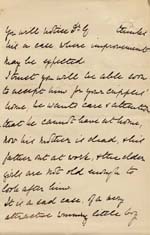 You will notice Dr G thinks
his a case where improvement
may be expected.
I trust you will be able soon
to accept him for your cripples'
home, he wants care & attention
that he cannot have at home,
now his mother is dead, & his
father out at work, & the older
girls are not old enough to
look after him.
It is a sad case, of a very
attractive winning little boy